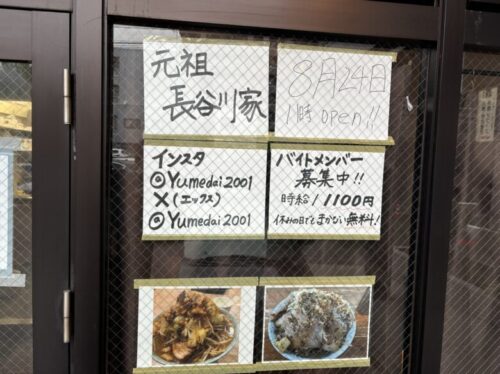 元祖
長谷川家
8月24日
11時 open!!
インスタ
@Yumedai2001
X(エックス)
@Yumedai2001
バイトメンバー
募集中!!
時給/1100円
休みの日でもまかない無料!